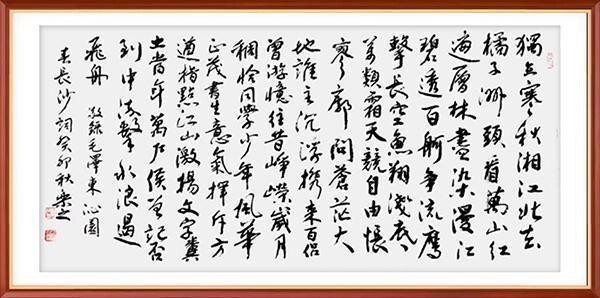 獨立寒秋湘江北去
橘子洲頭看萬山紅
遍層林盡染漫江
碧透百舸爭流鷹
擊長空魚翔淺底
萬類霜天競自由悵
寥廓問蒼茫大
地誰主沉浮攜來百侶
曾游憶往昔崢嶸歲月
稠恰同學少年風華
正茂書生意氣揮斥方
遒指點江山激揚文字糞
土當年萬戶侯曾記否
到中流擊水浪遏
飛舟 敬錄毛澤東沁園
春長沙詞癸卯秋樂之